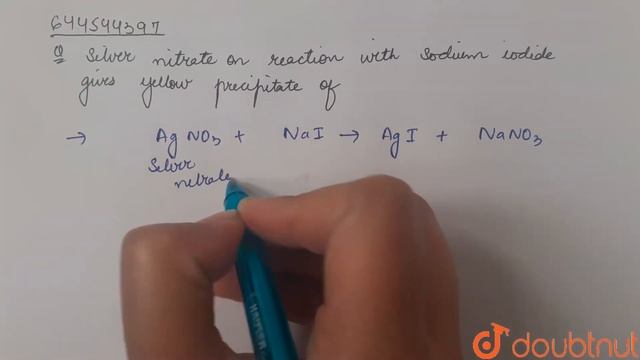 644544397
Q Silver nitrate on reaction with sodium iodide
gives yellow precipitate of
→ AgNO₃ + NaI → AgI + NaNO₃
Silver
nitrate
doubtnut